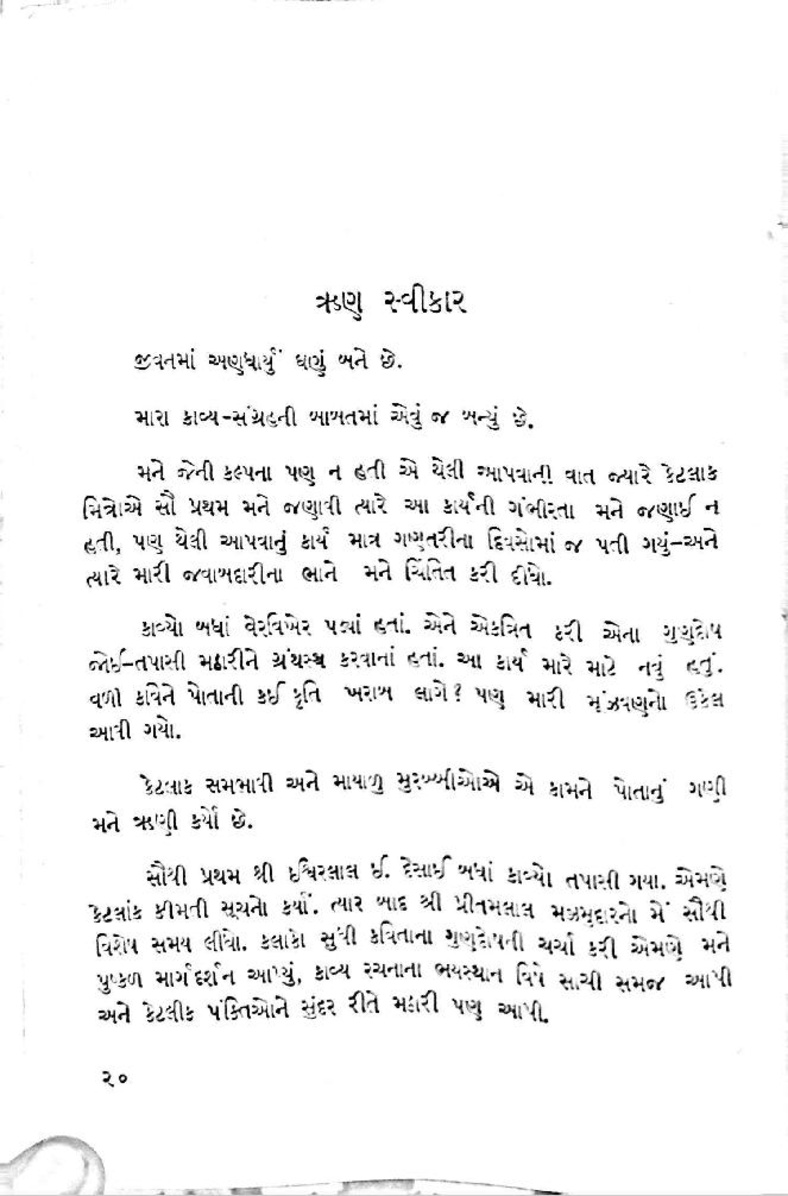 ઋણ સ્વીકાર
જીવનમાં અણધાર્યું ઘણું બને છે.
મારા કાવ્ય-સંગ્રહની બાબતમાં એવું જ બન્યું છે.
મને જેની કલ્પના પણ ન હતી એ થેલી આપવાની વાત જ્યારે કેટલાક
મિત્રોએ સૌ પ્રથમ મને જણાવી ત્યારે આ કાર્યની ગંભીરતા મને જણાઈ ન
હતી, પણ થેલી આપવાનું કાર્ય માત્ર ગણતરીના દિવસોમાં જ પતી ગયું-અને
ત્યારે મારી જવાબદારીના ભાને મને ચિંતિત કરી દીધો.
કાવ્યો બધાં વેરવિખેર પડ્યાં હતાં. એને એકત્રિત કરી એના ગુણદોષ
જોઈ-તપાસી મઠારીને ગ્રંથસ્થ કરવાનાં હતાં. આ કાર્ય મારે માટે નવું હતું.
વળી કવિને પોતાની કઈ કૃતિ ખરાબ લાગે? પણ મારી મૂંઝવણનો ઉકેલ
આવી ગયો.
કેટલાક સમભાવી અને માયાળુ મુરબ્બીઓએ એ કામને પોતાનું ગણી
મને ઋણી કર્યો છે.
સૌથી પ્રથમ શ્રી ઇશ્વિરલાલ ઈ. દેસાઈ બધાં કાવ્યો તપાસી ગયા. એમણે
કેટલાંક કીમતી સૂચનો કર્યાં. ત્યાર બાદ શ્રી પ્રીતમલાલ મઝમુદારનો મેં સૌથી
વિશેષ સમય લીધો. કલાકો સુધી કવિતાના ગુણદોષની ચર્ચા કરી એમણે મને
પુષ્કળ માર્ગદર્શન આપ્યું, કાવ્ય રચનાના ભયસ્થાન વિષે સાચી સમજ આપી
અને કેટલીક પંક્તિઓને સુંદર રીતે મઠારી પણ આપી.
૨૦